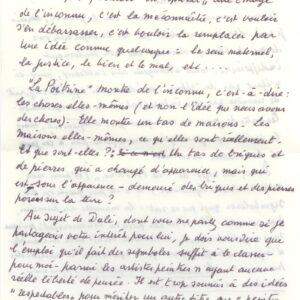 de l'inconnu, c'est la méconnaître, c'est vouloir
s'en débarrasser, c'est vouloir la remplacer par
une idée connue quelconque : le sein maternel,
la justice, le bien et le mal, etc....
"La Poitrine" montre de l'inconnu, c'est-à-dire :
les choses elles-mêmes (et non l'Idée que nous avons
des choses). Elle montre un tas de maisons : les
maisons elles-mêmes, ce qu'elles sont réellement.
Et que sont-elles ? Un tas de briques et
de pierres qui a changé d'apparence, mais qui
est sous l'apparence - demeuré des briques et des pierres
posées sur la terre ?
Au sujet de Dali, dont vous me parlez comme si je
partageais votre intérêt pour lui, je dois vous dire que
l'emploi qu'il fait des symboles suffit à le classer -
pour moi - parmi les artistes peintres n'ayant aucune
réelle liberté de pensée. Il est trop soumis à des idées
"respectables" pour mériter un autre titre que "peintre